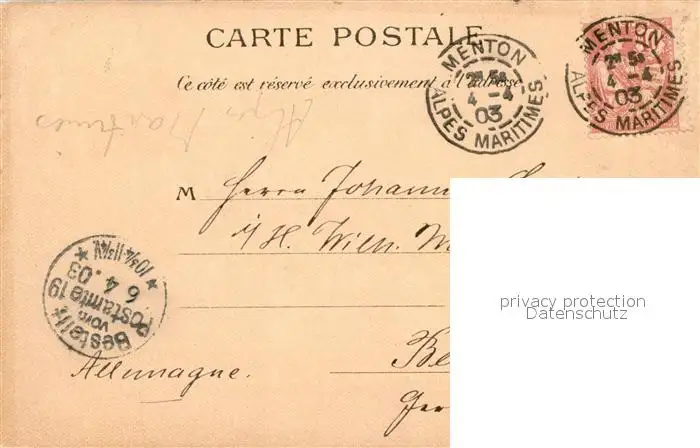 CARTE POSTALE
Ce côté est réservé exclusivement à l'adresse
MENTON
2E 5S
4 - 4
03
ALPES MARITIMES
MENTON
2E 5S
4 - 4
03
ALPES MARITIMES
Alpes Maritimes
M Herrn Johann
i/H. Wilh.
Bestellt
vom
Postamte 19
6 4. 03
* 10¾-11¾N. *
Be
Allemagne.
Ger
privacy protection
Datenschutz